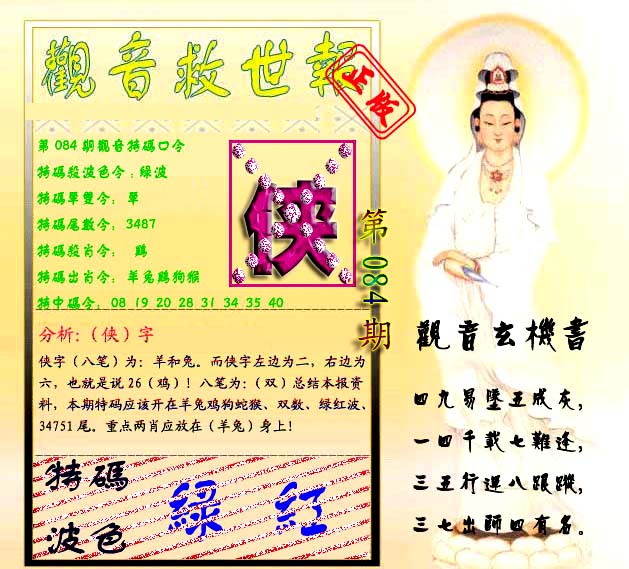 觀音救世報
正版
第 084 期觀音特碼口令
特碼殺波色令：綠波
特碼單雙令： 單
特碼尾數令： 3487
特碼殺肖令： 鷄
特碼出肖令： 羊兔鷄狗猴
特中碼令： 08 19 20 28 31 34 35 40
俠
第 084 期
分析:（俠）字
俠字（八笔）为：羊和兔。而俠字左边为二，右边为
六，也就是说 26（鸡）！八笔为：（双）总结本报资
料，本期特码应该开在羊兔鸡狗蛇猴、双数、绿红波、
34751 尾。重点两肖应放在（羊兔）身上！
特碼
波色
綠 紅
觀音玄機書
四九易墜五成灰，
一四千載七難逢，
三五行運八跟蹤，
三七出師四有名。